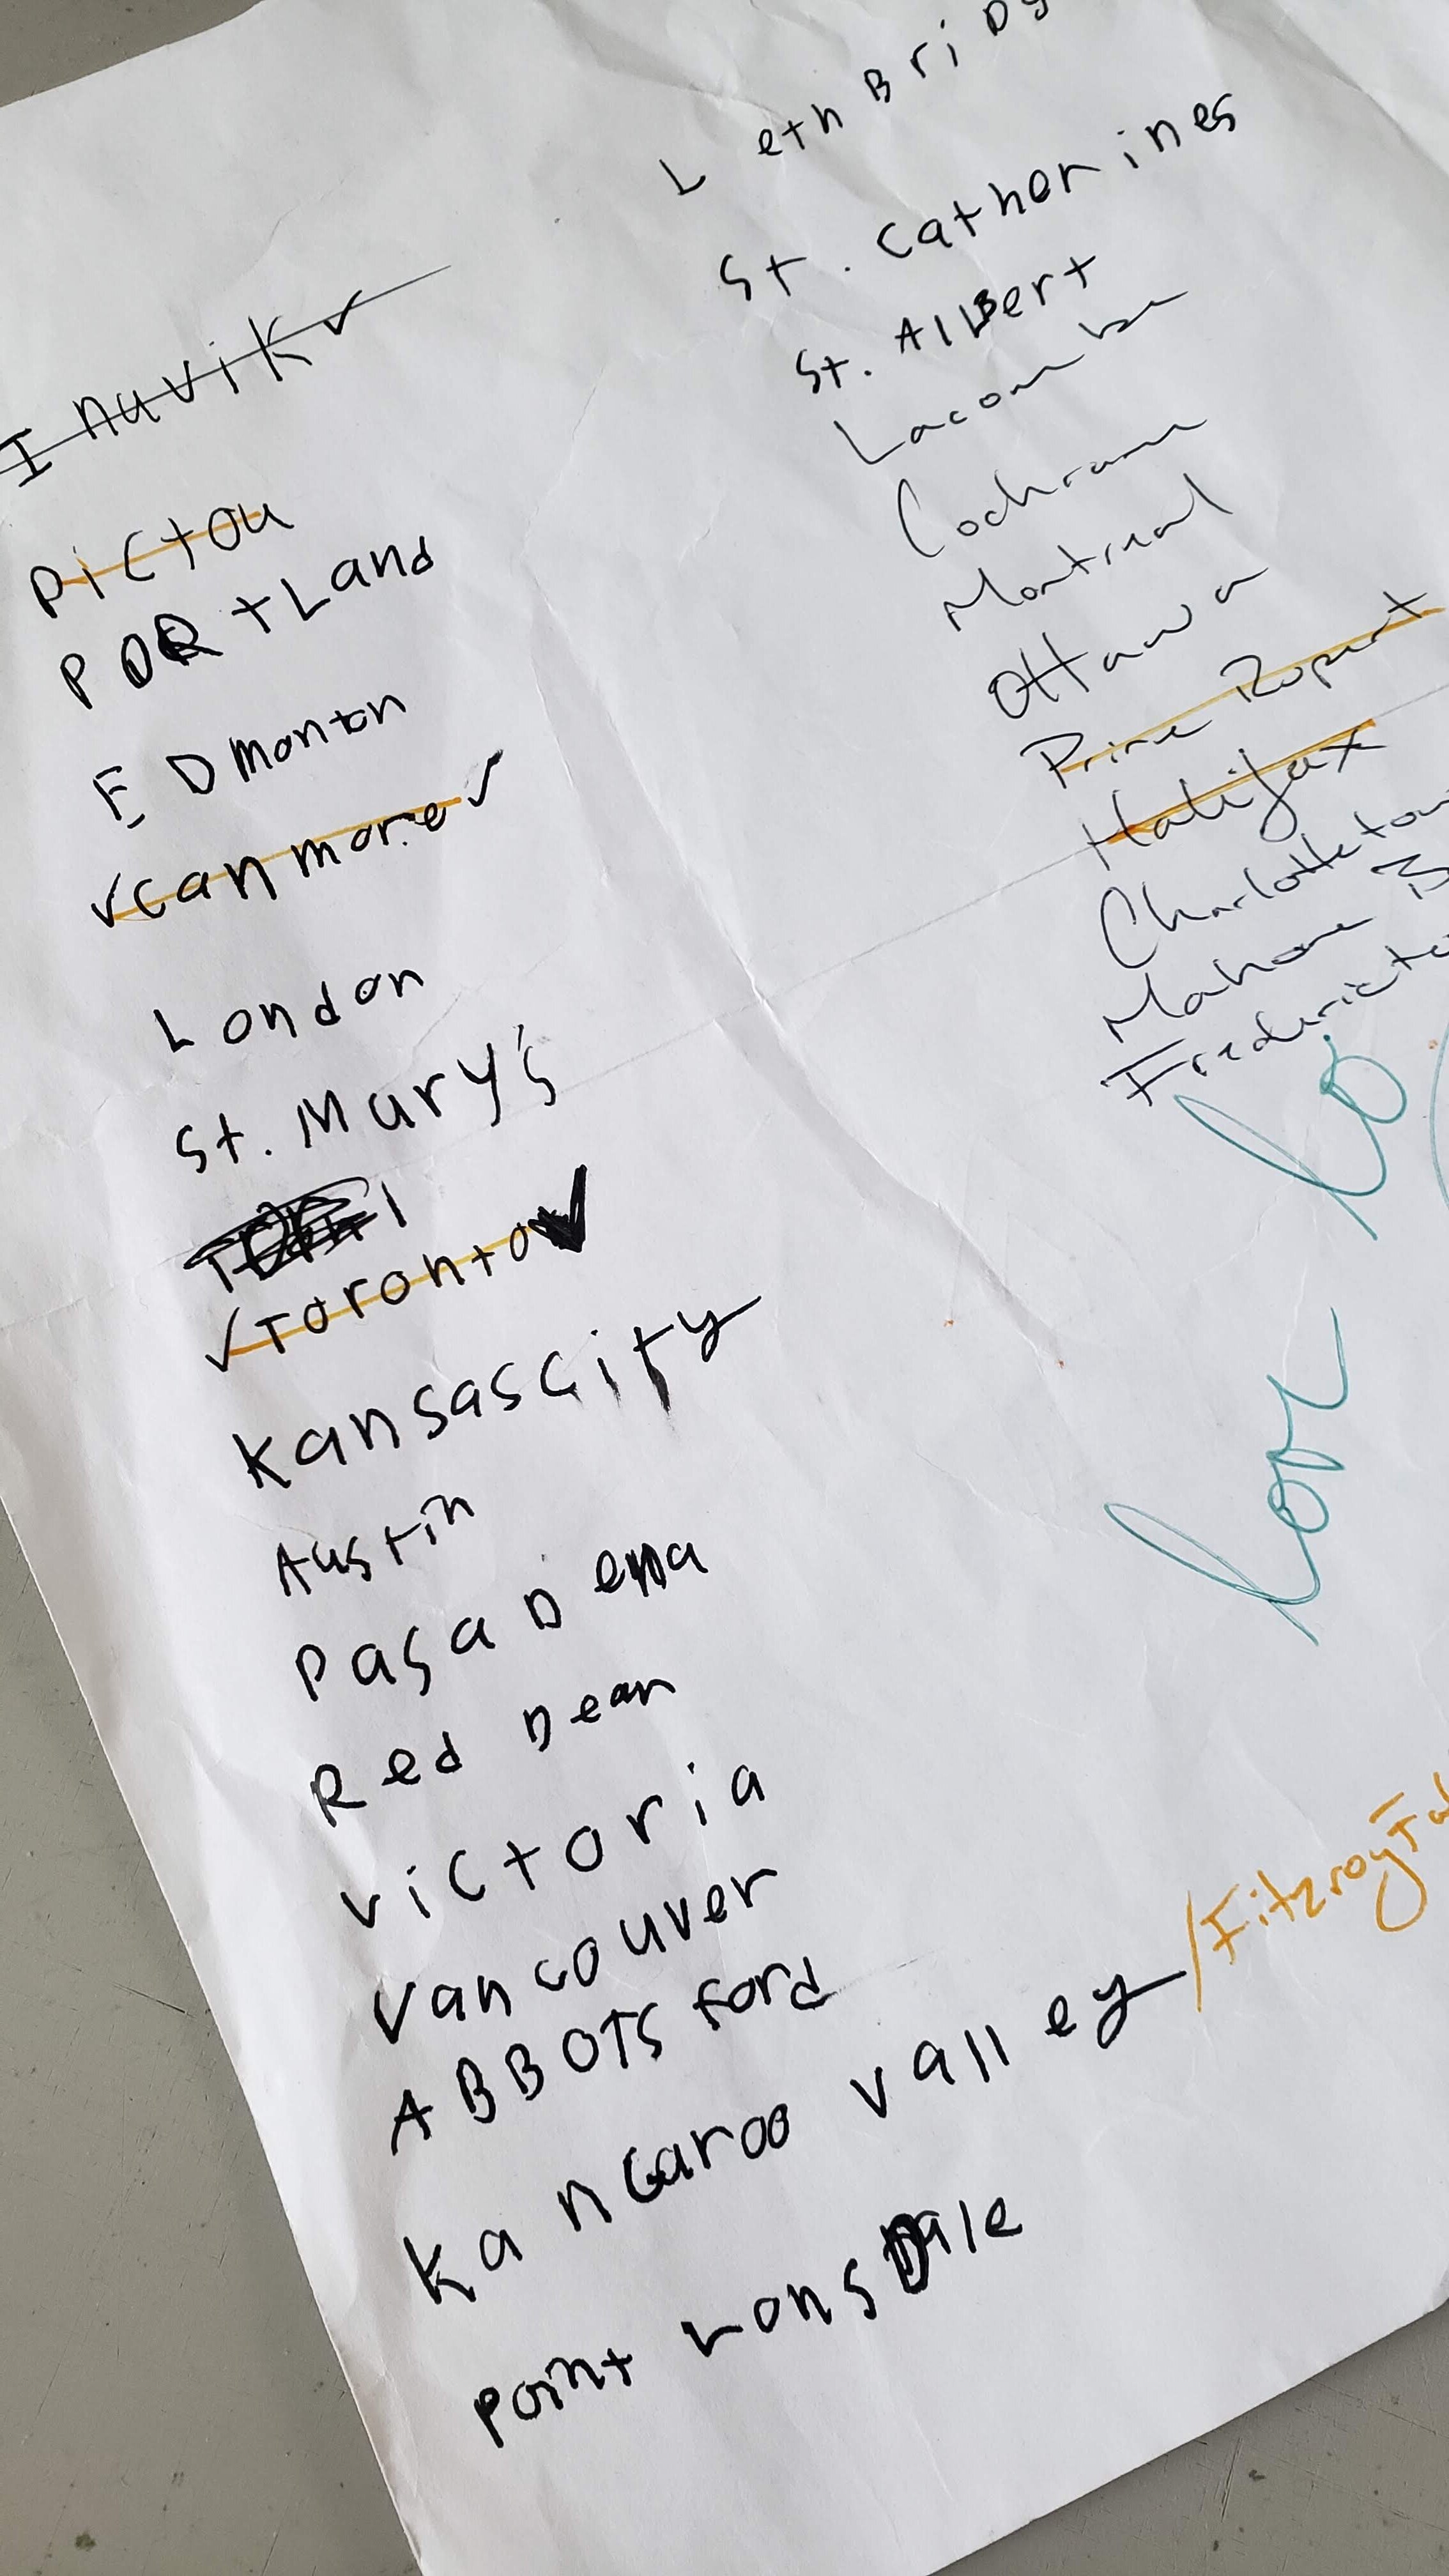 Inuvik ✓
Pictou
PORtLand
EDmonton
✓Canmore✓
London
St. Mary's
✓Toronto✓
Kansascity
Austin
PasaDena
Red Dear
Victoria
Vancouver
ABBOTS ford
KanGaroo valley/Fitzroy
Point LonsDale
LethBriDg
St. Catherines
St. AlBert
Lacombe
Cochrane
Montreal
Ottawa
Prince Rupert
Halifax
Charlotteto
Mahone B
Fredericto